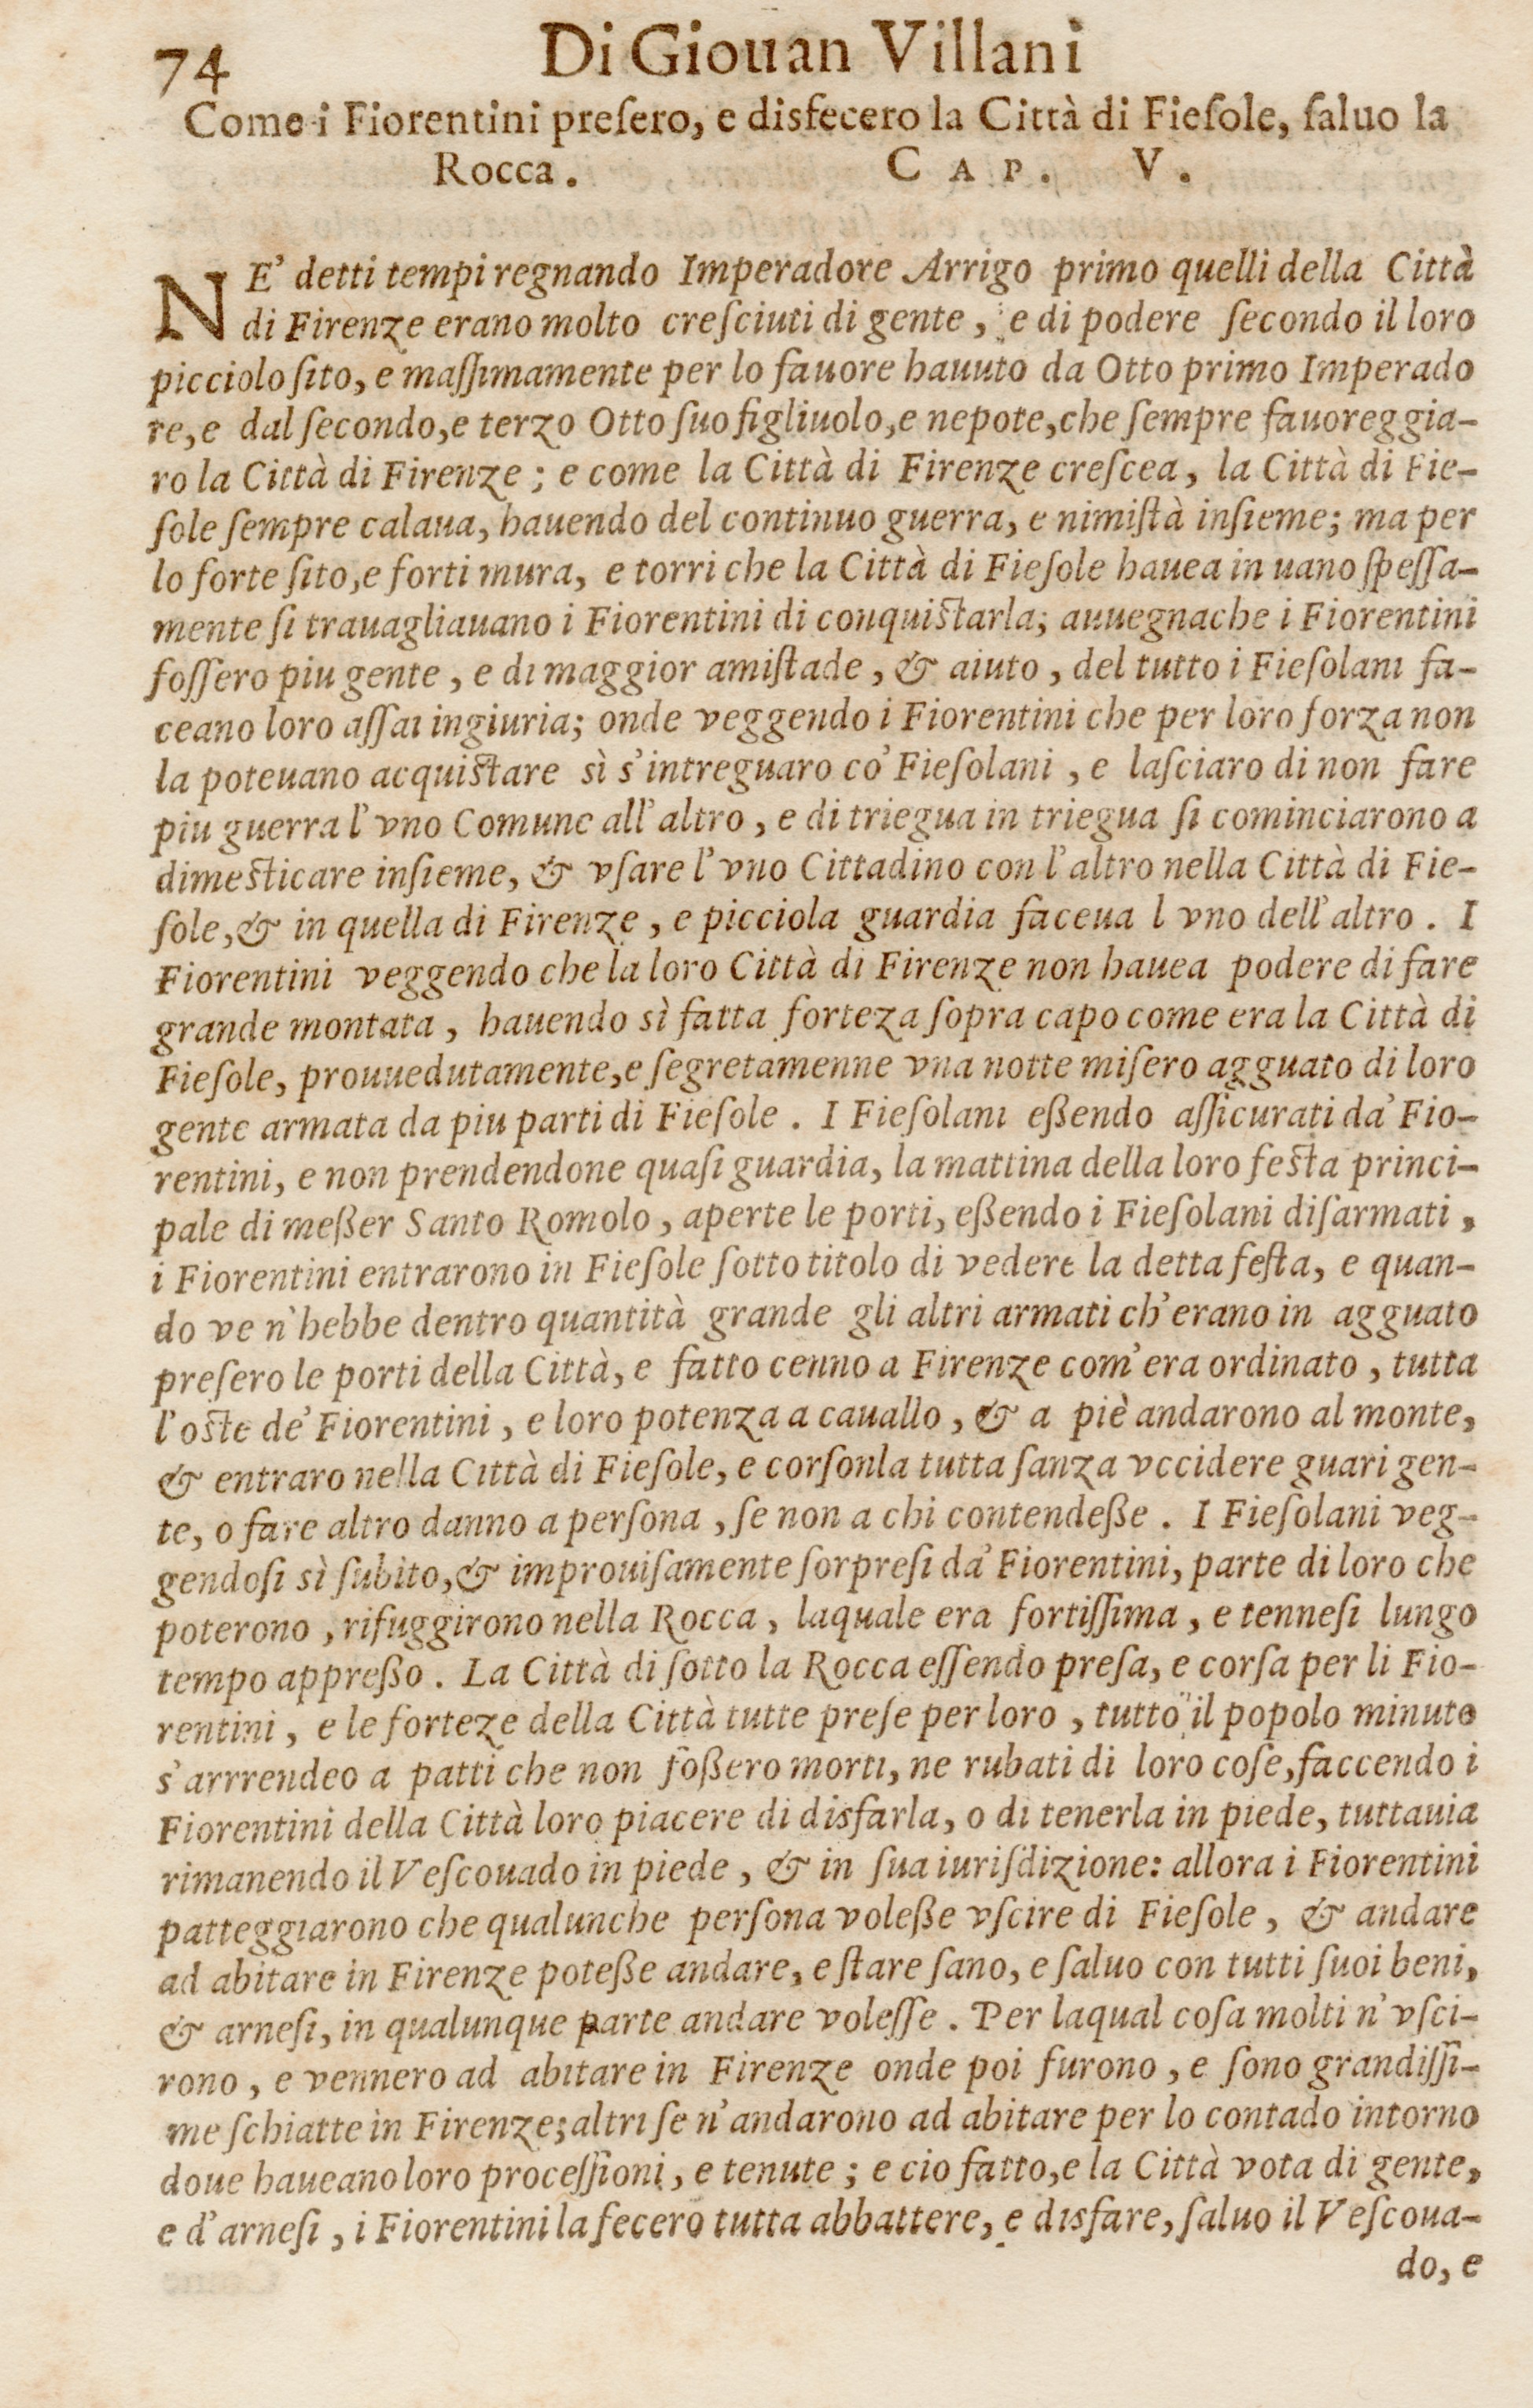 74 Di Giouan Villani
Come i Fiorentini preſero, e disfecero la Città di Fieſole, ſaluo la
Rocca. CAP. V.
NE' detti tempi regnando Imperadore Arrigo primo quelli della Città
di Firenze erano molto creſciuti di gente, e di podere ſecondo il loro
picciolo ſito, e maſſimamente per lo fauore hauuto da Otto primo Imperado
re, e dal ſecondo, e terzo Otto ſuo figliuolo, e nepote, che ſempre fauoreggia-
ro la Città di Firenze; e come la Città di Firenze creſcea, la Città di Fie-
ſole ſempre calaua, hauendo del continuo guerra, e nimiſtà inſieme; ma per
lo forte ſito, e forti mura, e torri che la Città di Fieſole hauea in uano ſpeſſa-
mente ſi trauagliauano i Fiorentini di conquiſtarla; auuegnache i Fiorentini
foſſero piu gente, e di maggior amiſtade, & aiuto, del tutto i Fieſolani fa-
ceano loro aſſai ingiuria; onde veggendo i Fiorentini che per loro forza non
la poteuano acquiſtare sì s'intreguaro co' Fieſolani, e laſciaro di non fare
piu guerra l'vno Comune all'altro, e di triegua in triegua ſi cominciarono a
dimeſticare inſieme, & vſare l'vno Cittadino con l'altro nella Città di Fie-
ſole, & in quella di Firenze, e picciola guardia faceua l vno dell'altro. I
Fiorentini veggendo che la loro Città di Firenze non hauea podere di fare
grande montata, hauendo sì fatta forteza ſopra capo come era la Città di
Fieſole, prouuedutamente, e ſegretamenne vna notte miſero agguato di loro
gente armata da piu parti di Fieſole. I Fieſolani eßendo aſſicurati da' Fio-
rentini, e non prendendone quaſi guardia, la mattina della loro feſta princi-
pale di meßer Santo Romolo, aperte le porti, eßendo i Fieſolani diſarmati,
i Fiorentini entrarono in Fieſole ſotto titolo di vedere la detta feſta, e quan-
do ve n'hebbe dentro quantità grande gli altri armati ch'erano in agguato
preſero le porti della Città, e fatto cenno a Firenze com'era ordinato, tutta
l'oſte de' Fiorentini, e loro potenza a cauallo, & a piè andarono al monte,
& entraro nella Città di Fieſole, e corſonla tutta ſanza vccidere guari gen-
te, o fare altro danno a perſona, ſe non a chi contendeße. I Fieſolani veg-
gendoſi sì ſubito, & improuiſamente ſorpreſi da' Fiorentini, parte di loro che
poterono, rifuggirono nella Rocca, laquale era fortiſſima, e tenneſi lungo
tempo appreßo. La Città di ſotto la Rocca eſſendo preſa, e corſa per li Fio-
rentini, e le forteze della Città tutte preſe per loro, tutto il popolo minuto
s'arrrendeo a patti che non foßero morti, ne rubati di loro coſe, faccendo i
Fiorentini della Città loro piacere di disfarla, o di tenerla in piede, tuttauia
rimanendo il Veſcouado in piede, & in ſua iuriſdizione: allora i Fiorentini
patteggiarono che qualunche perſona voleße vſcire di Fieſole, & andare
ad abitare in Firenze poteße andare, e ſtare ſano, e ſaluo con tutti ſuoi beni,
& arneſi, in qualunque parte andare voleſſe. Per laqual coſa molti n'vſci-
rono, e vennero ad abitare in Firenze onde poi furono, e ſono grandiſſi-
me ſchiatte in Firenze; altri ſe n'andarono ad abitare per lo contado intorno
doue haueano loro proceſſioni, e tenute; e cio fatto, e la Città vota di gente,
e d'arneſi, i Fiorentini la fecero tutta abbattere, e disfare, ſaluo il Veſcoua-
do, e